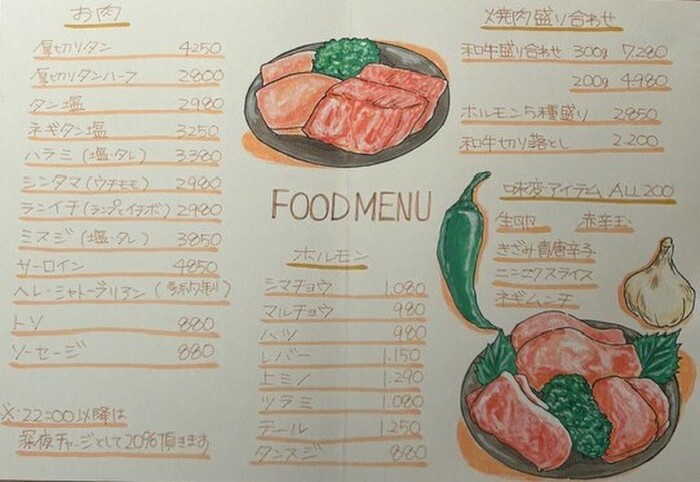 お肉
厚切りタン 4250
厚切りタンハーフ 2800
タン塩 2980
ネギタン塩 3250
ハラミ(塩・タレ) 3380
シンタマ(ウチモモ) 2980
ランイチ(ランプとイチボ) 2980
ミスジ(塩・タレ) 3850
サーロイン 4850
ヘレ・シャトーブリアン(予約制)
トソ 880
ソーセージ 880
※22:00以降は
深夜チャージとして20%頂きます
FOOD MENU
ホルモン
シマチョウ 1.080
マルチョウ 980
ハツ 980
レバー 1.150
上ミノ 1.290
ツラミ 1.080
テール 1.250
タンスジ 880
焼肉盛り合わせ
和牛盛り合わせ 300g 7.280
200g 4.980
ホルモン5種盛り 2.850
和牛切り落とし 2.200
味変アイテム ALL200
生卵 赤辛玉
きざみ青唐辛子
ニンニクスライス
ネギムンチ